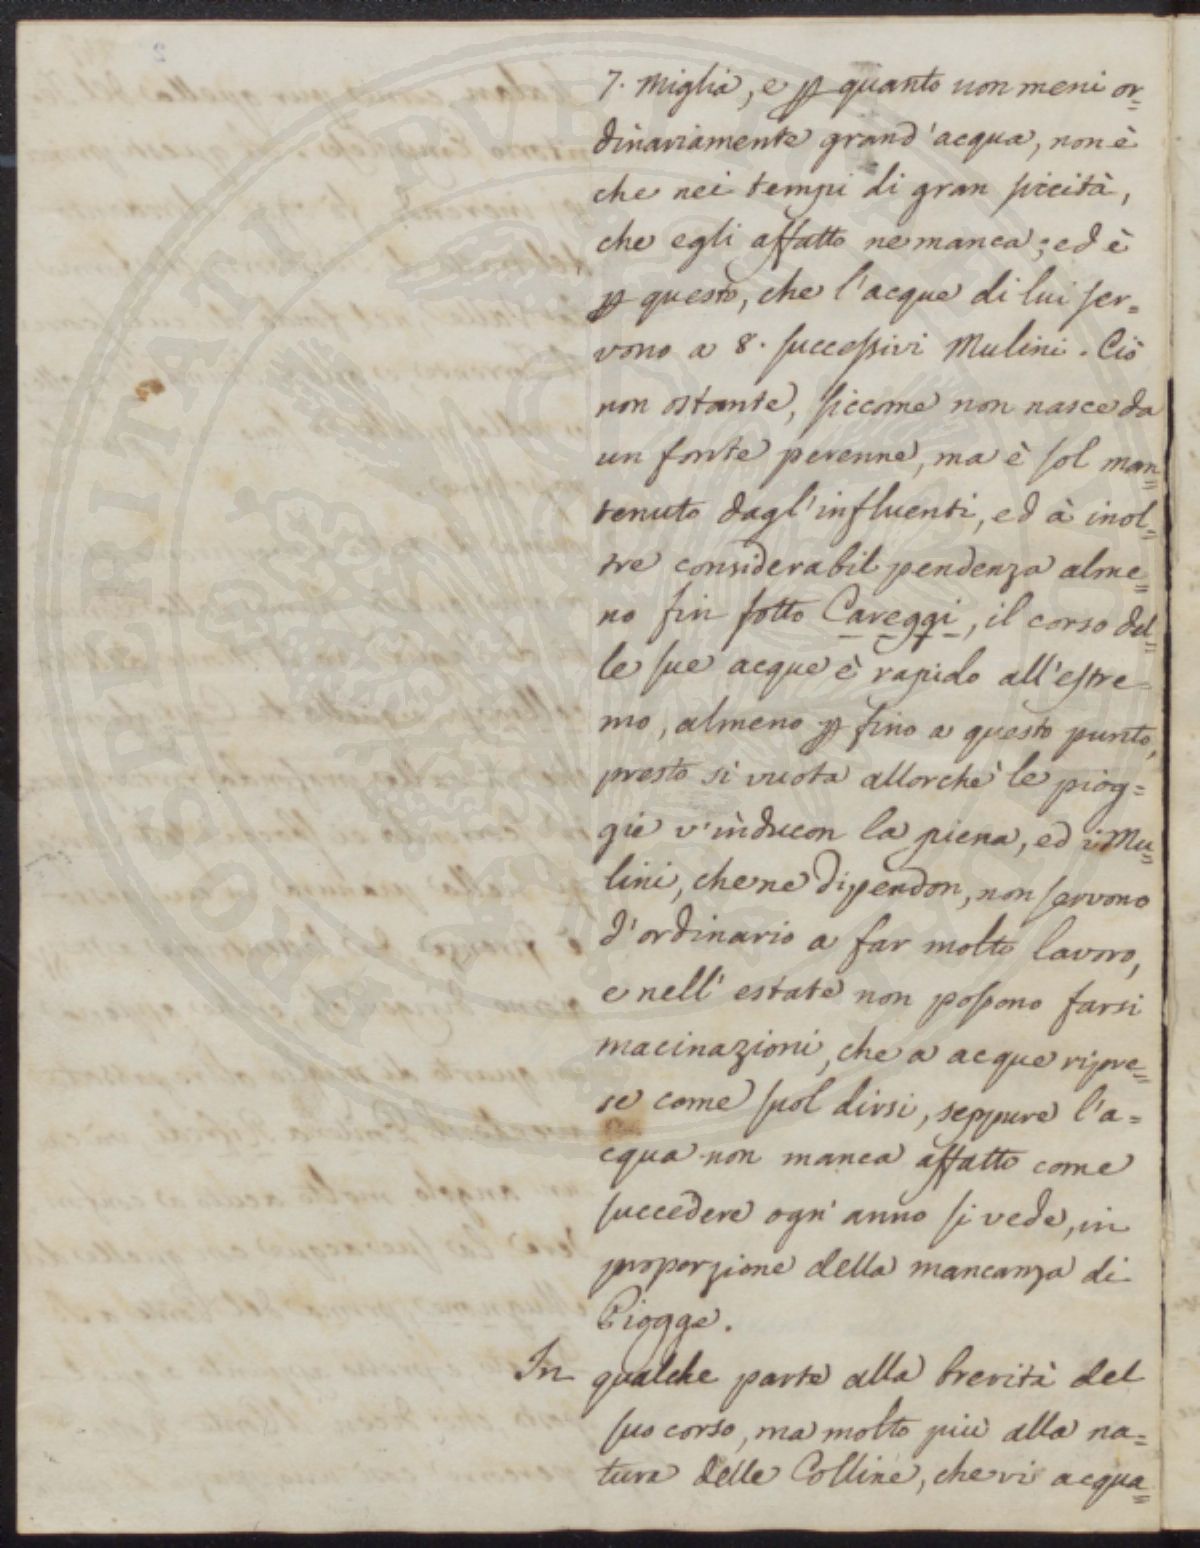 7. Miglia, e ꝑ quanto non meni or=
dinariamente grand'acqua, non è
che nei tempi di gran siccità,
che egli affatto ne manca; ed è
ꝑ questo, che l'acque di lui ser=
vono a 8. successivi Mulini. Ciò
non ostante, siccome non nasce da
un fonte perenne, ma è sol man=
tenuto dagl'influenti, ed à inol=
tre considerabil pendenza alme=
no fin sotto Careggi, il corso del=
le sue acque è rapido all'estre=
mo, almeno ꝑ fino a questo punto,
presto si vuota allorchè le piog=
gie v'inducon la piena, ed i Mu=
lini, che ne dipendon, non servono
d'ordinario a far molto lavoro,
e nell'estate non possono farsi
macinazioni, che a acque ripre=
se come suol dirsi, seppure l'a=
cqua non manca affatto come
succedere ogn'anno si vede, in
proporzione della mancanza di
Piogge.
In qualche parte alla brevità del
suo corso, ma molto più alla na=
tura delle Colline, che vi acqua=